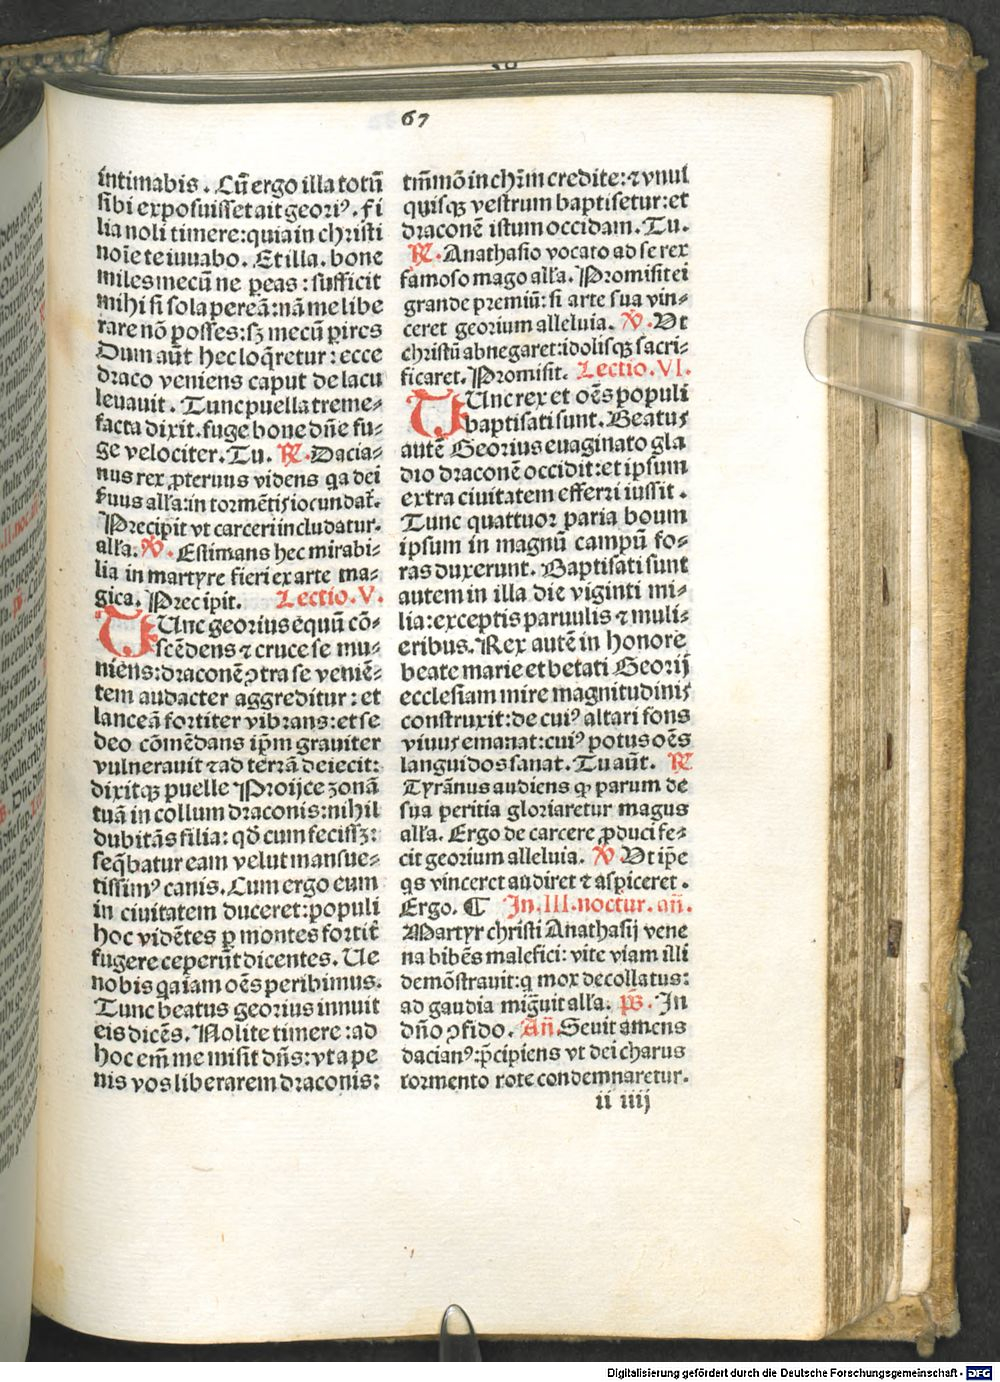 67
intimabis. Cũ ergo illa totũ
sibi exposuisset ait geori⁹. fi
lia noli timere: quia in christi
noĩe te iuuabo. Et illa. bone
miles mecũ ne ꝑeas: sufficit
mihi si sola pereã: nã me libe
rare nõ posses: sꝫ mecũ ꝑires
Dum aũt hec loq̃retur: ecce
draco veniens caput de lacu
leuauit. Tunc puella treme⸗
facta dixit. fuge bone dñe fu⸗
ge velociter. Tu. ℟. Dacia⸗
nus rex ꝓteruus videns qa dei
suus alľa: in tormẽtis iocundat̃.
Precipit vt carceri includatur.
alľa. ℣. Estimans hec mirabi⸗
lia in martyre fieri ex arte ma⸗
gica. Precipit. Lectio. V.
TUnc georius equũ cõ⸗
scẽdens ⁊ cruce se mu⸗
niens: draconẽ ꝯtra se veniẽ⸗
tem audacter aggreditur: et
lanceã fortiter vibrans: et se
deo cõmẽdans ip̃m grauiter
vulnerauit ⁊ ad terrã deiecit:
dixitqꝫ puelle Proijce zonã
tuã in collum draconis: nihil
dubitãs filia: qđ cum fecissꝫ:
seq̃batur eam velut mansue⸗
tissim⁹ canis. Cum ergo eum
in ciuitatem duceret: populi
hoc vidẽtes ꝑ montes fortit̃
fugere ceperũt dicentes. Ue
nobis qa iam oẽs peribimus.
Tunc beatus georius innuit
eis dicẽs. Nolite timere: ad
hoc em̃ me misit dñs: vt a pe
nis vos liberarem draconis:
tm̃mõ in chr̃m credite: ⁊ vnus
quisqꝫ vestrum baptisetur: et
draconẽ istum occidam. Tu.
℟. Anathasio vocato ad se rex
famoso mago alľa. Promisit ei
grande premiũ: si arte sua vin⸗
ceret georium alleluia. ℣. Ut
christũ abnegaret: idolisqꝫ sacri⸗
ficaret. Promisit. Lectio. VI.
TUnc rex et oẽs populi
baptisati sunt. Beatus
autẽ Georius euaginato gla
dio draconẽ occidit: et ipsum
extra ciuitatem efferri iussit.
Tunc quattuor paria boum
ipsum in magnũ campũ fo⸗
ras duxerunt. Baptisati sunt
autem in illa die viginti mi⸗
lia: exceptis paruulis ⁊ muli⸗
eribus. Rex autẽ in honore
beate marie et betati Georij
ecclesiam mire magnitudinis
construxit: de cui⁹ altari fons
viuus emanat: cui⁹ potus oẽs
languidos sanat. Tu aũt. ℟
Tyrãnus audiens ꝙ parum de
sua peritia gloriaretur magus
alľa. Ergo de carcere ꝓduci fe⸗
cit georium alleluia. ℣ Ut ip̃e
qs vinceret audiret ⁊ aspiceret.
Ergo. ¶ In. III. noctur. añ.
Martyr christi Anathasij vene
na bibẽs malefici: vite viam illi
demõstrauit: q mox decollatus:
ad gaudia mig̃uit alľa. p̃s. In
dño ꝯfido. Añ. Seuit amens
dacian⁹: p̃cipiens vt dei charus
tormento rote condemnaretur.
ii iiij
Digitalisierung gefördert durch die Deutsche Forschungsgemeinschaft - DFG